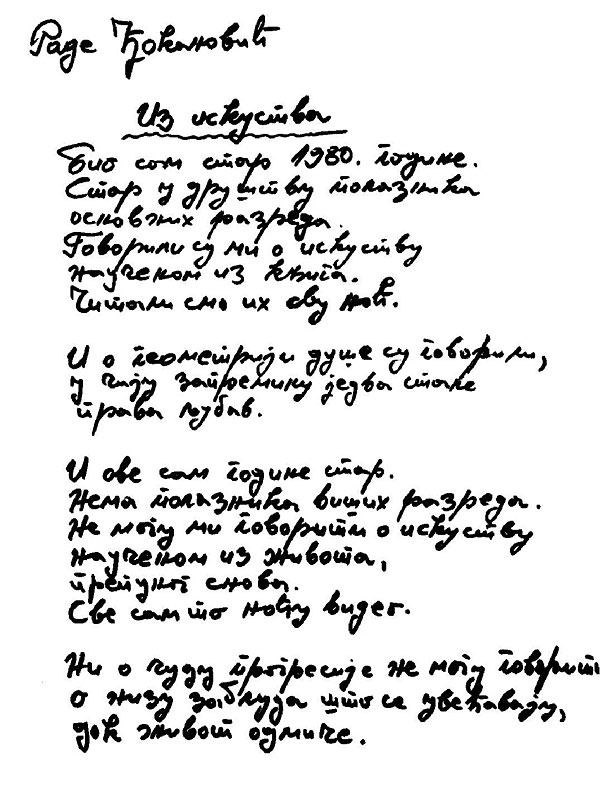 Раде Ђокановић
Из искуства
Био сам стар 1980. године.
Стар у друштву полазника
основних разреда.
Говорили су ми о искуству
наученом из књига.
Читали смо их сву ноћ.
И о геометрији душе су говорили,
у чију запремину једва стане
права љубав.
И ове сам године стар.
Нема полазника виших разреда.
Не могу ми говорити о искуству
наученом из живота,
препуног снова.
Све сам то ноћу видео.
Ни о чуду прогресије не могу говорити
о низу заблуда што се увећавају,
док живот одмиче.